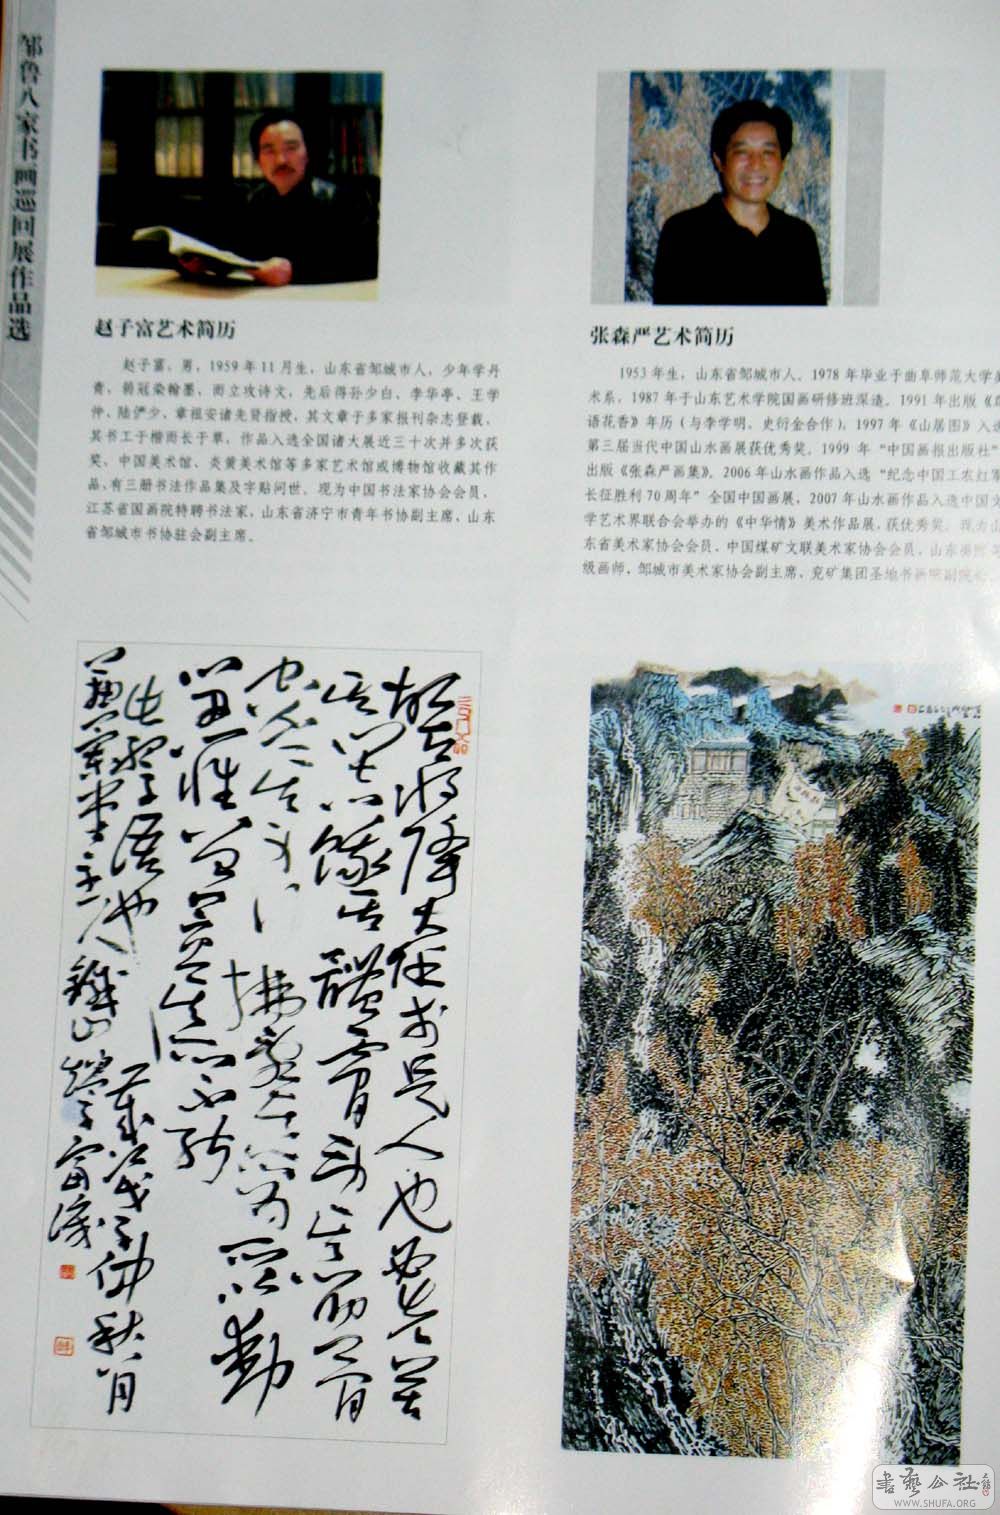 邹鲁八家书画巡回展作品选
赵子富艺术简历
赵子富，男，1959年11月生，山东省邹城市人，少年学丹
青，弱冠染翰墨，而立攻诗文，先后得孙少白、李华亭、王学
仲、陆俨少、章祖安诸先贤指授，其文章于多家报刊杂志登载，
其书工于楷而长于草，作品入选全国诸大展近三十次并多次获
奖，中国美术馆、炎黄美术馆等多家艺术馆或博物馆收藏其作
品，有三册书法作品集及字贴问世。现为中国书法家协会会员，
江苏省国画院特聘书法家，山东省济宁市青年书协副主席，山东
省邹城市书协驻会副主席。
张森严艺术简历
1953年生，山东省邹城市人，1978年毕业于曲阜师范大学美
术系，1987年于山东艺术学院国画研修班深造。1991年出版《
语花香》年历（与李学明、史衍金合作），1997年《山居图》入选
第三届当代中国山水画展获优秀奖，1999年“中国画报出版社”
出版《张森严画集》，2006年山水画作品入选“纪念中国工农红军
长征胜利70周年”全国中国画展，2007年山水画作品入选中国文
学艺术界联合会举办的《中华情》美术作品展，获优秀奖。现为山
东省美术家协会会员、中国煤矿文联美术家协会会员，山东
级画师、邹城市美术家协会副主席、兖矿集团圣地书画院副院
故天将降大任于是人也必先苦
其心志饿其体肤劳其筋骨
空乏其身行拂乱其所为所以动
心忍性曾益其所不能
岁次戊子仲秋月
書藝公社
WWW.SHUFA.ORG